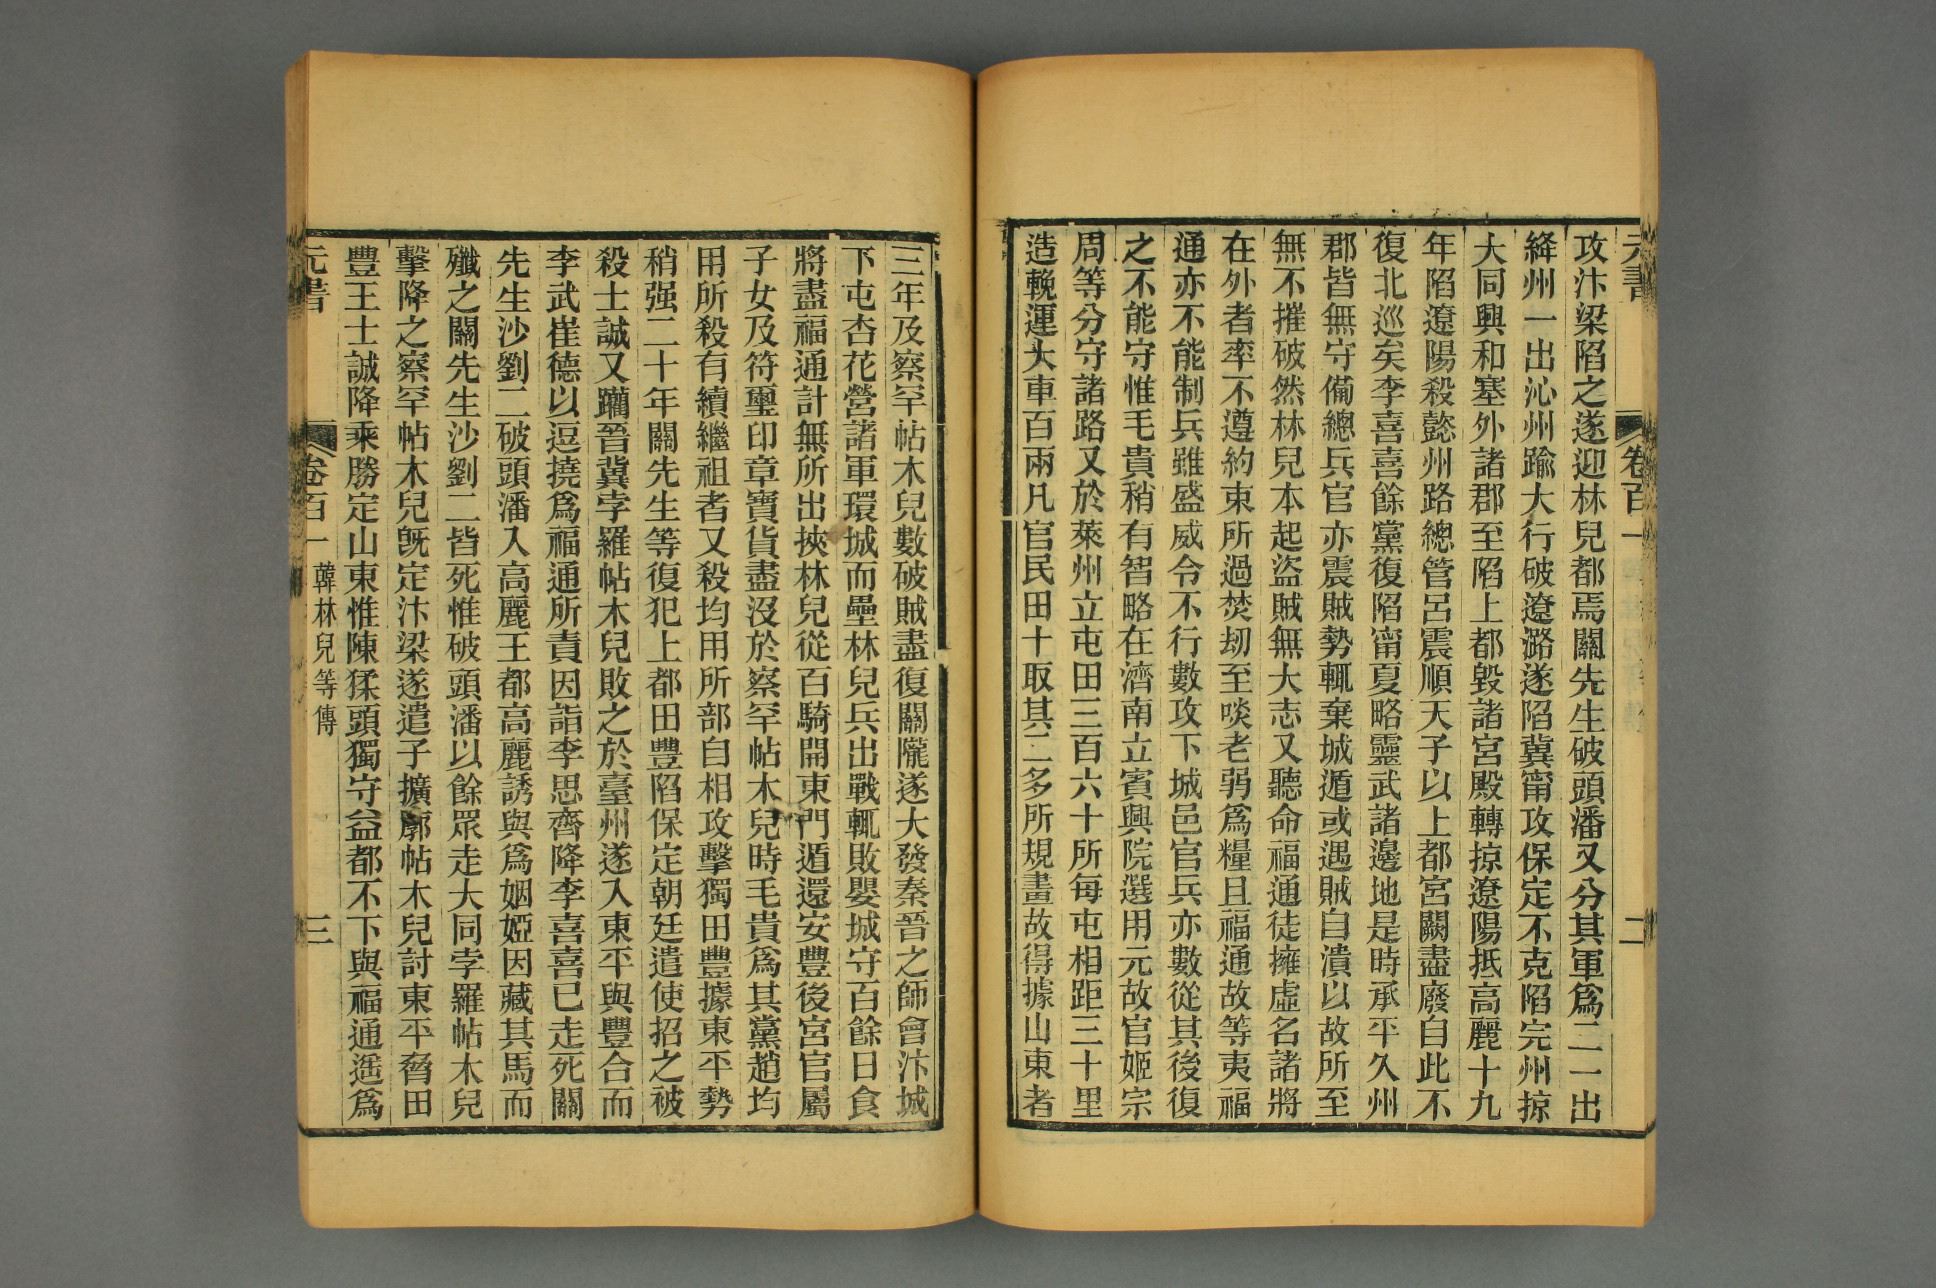 元書
卷百一
二
攻汴梁陷之遂迎林兒都焉關先生破頭潘又分其軍爲二一出
絳州一出沁州踰大行破遼潞遂陷冀甯攻保定不克陷完州掠
大同興和塞外諸郡至陷上都毀諸宮殿轉掠遼陽抵高麗十九
年陷遼陽殺懿州路總管呂震順天子以上都宮闕盡廢自此不
復北巡矣李喜喜餘黨復陷甯夏略靈武諸邊地是時承平久州
郡皆無守備總兵官亦震賊勢輒棄城遁或遇賊自潰以故所至
無不摧破然林兒本起盜賊無大志又聽命福通徒擁虛名諸將
在外者率不遵約束所過焚刼至啖老弱爲糧且福通故等夷福
通亦不能制兵雖盛威令不行數攻下城邑官兵亦數從其後復
之不能守惟毛貴稍有智略在濟南立賓興院選用元故官姬宗
周等分守諸路又於萊州立屯田三百六十所每屯相距三十里
造輓運大車百兩凡官民田十取其二多所規畫故得據山東者
三年及察罕帖木兒數破賊盡復關隴遂大發秦晉之師會汴城
下屯杏花營諸軍環城而壘林兒兵出戰輒敗嬰城守百餘日食
將盡福通計無所出挾林兒從百騎開東門遁還安豐後宮官屬
子女及符璽印章寶貨盡沒於察罕帖木兒時毛貴爲其黨趙均
用所殺有續繼祖者又殺均用所部自相攻擊獨田豐據東平勢
稍强二十年關先生等復犯上都田豐陷保定朝廷遣使招之被
殺士誠又躪晉冀孛羅帖木兒敗之於臺州遂入東平與豐合而
李武崔德以逗撓爲福通所責因詣李思齊降李喜喜已走死關
先生沙劉二破頭潘入高麗王都高麗誘與爲姻婭因藏其馬而
殲之關先生沙劉二皆死惟破頭潘以餘眾走大同孛羅帖木兒
擊降之察罕帖木兒旣定汴梁遂遣子擴廓帖木兒討東平脅田
豐王士誠降乘勝定山東惟陳猱頭獨守益都不下與福通遥爲
元書
卷百一
韓林兒等傳
三